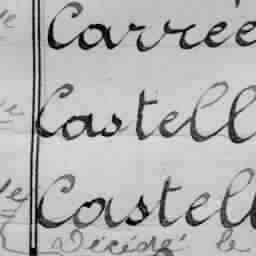 Carrée
Castell
Castell
Décédé le